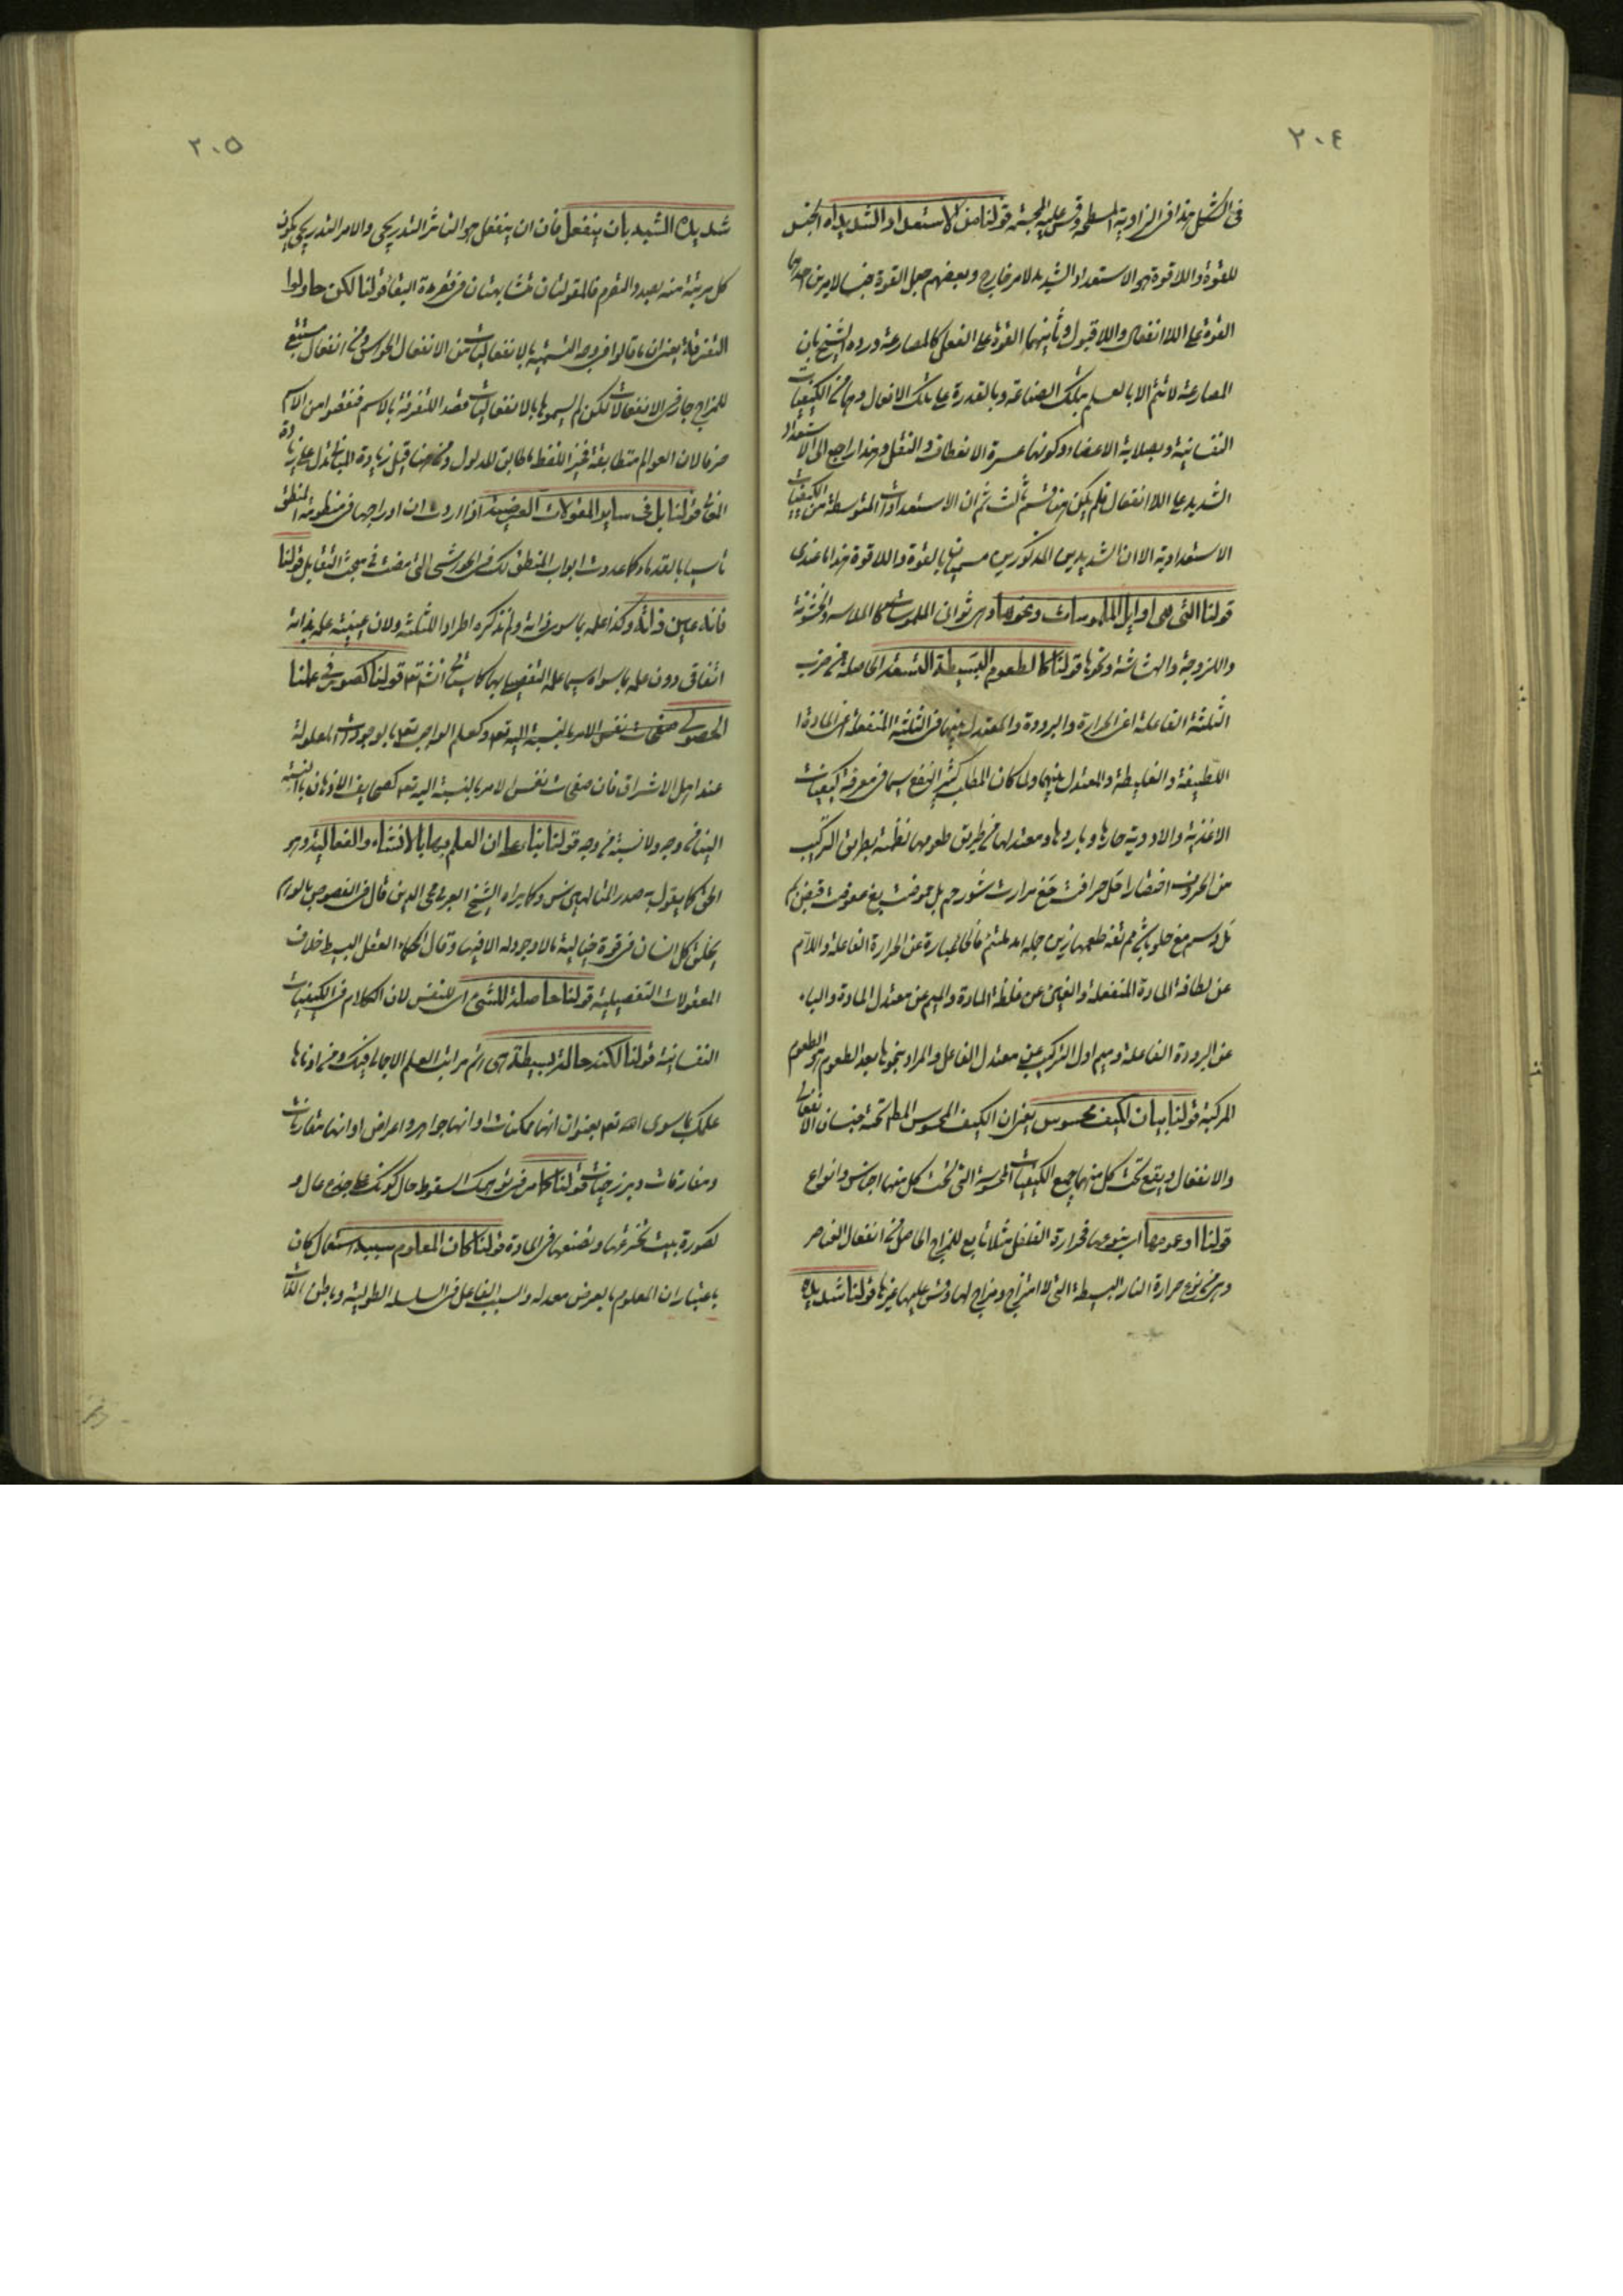 ٢٠٤
فى الشكل هذا فى الزاوية المسطحة وقس عليه المجسمة قولنا من الاستعداد الشديد اه الجنس
للقوة واللاقوة هو الاستعداد الشديد لامر خارج وبعضهم جعل القوة جنسا لامرين احدهما
القوة على اللاانفعال واللاقبول وثانيهما القوة على الفعل كالمصارعة ورده الشيخ بان
المصارعة لا تتم الا بالعلم بتلك الصناعة وبالقدرة على تلك الافعال وهما من الكيفيات
النفسانية وبصلابة الاعضاء وكونها عسرة الانعطاف والنقل وهذا راجع الى الاستعداد
الشديد على اللاانفعال فلم يكن هنا قسم ثالث ثم ان الاستعدادات المتوسطة من الكيفيات
الاستعدادية الا ان الشديدين المذكورين مسميان بالقوة واللاقوة هذا ما عندى
قولنا التى هى اوايل الملموسات ونحوها وهى ثوانى الملموسات كالملاسة والخشونة
واللزوجة والهشاشة ونحوها قولنا كالطعوم البسيطة التسعة الحاصلة من ضرب
الثلثة الفاعلة اعنى الحرارة والبرودة والمعتدل بينهما فى الثلثة المنفعلة اعنى المادة
اللطيفة والغليظة والمعتدل بينهما ولما كان المطلب كثير النفع سيما فى معرفة كيفيات
الاغذية والادوية حارها وباردها ومعتدلها من طريق طعومها نظمته بطريق التركيب
من الحروف اختصارا حَل حرافت حَغ مرارت شور حم بل حموضت بغ عفوصت قبض بم
مَل دسم مغ حلو باشى مم تفه طعمها زين جمله امد ملتئم فالحاء عبارة عن الحرارة الفاعلة واللام
عن لطافة المادة المنفعلة والغين عن غلظة المادة والميم عن معتدل المادة والباء
عن البرودة الفاعلة وميم اول التركيب عن معتدل الفاعل والمراد بنحوها بعد الطعوم هو الطعوم
المركبة قولنا بيان الكيف محسوس يعنى ان الكيف المحسوس المط تحته جنسان الانفعالى
والانفعال ويقع تحت كل منهما جميع الكيفيات المحسوسة التى تحت كل منها اجناس وانواع
قولنا او عمومها اى بنوعها فحرارة الفلفل مثلا تابع للمزاج الحاصل من انفعال العناصر
وهى من نوع حرارة النار البسيطة التى لا امتزاج ومزاج لها وقس عليها غيرها قولنا شديده
٢٠٥
شديده الشبه بان ينفعل فان ان ينفعل هو التاثر التدريجى والامر التدريجى يكون
كل مرتبة منه بعيد والتقوم فالمقولتان متشابهتان فى قرة البقا قولنا لكن حاولوا
التفرقة يعنى ان ما قالوا فى وجه التسمية بالانفعاليات من الانفعال الحواس ومن انفعال مستتبع
للمزاج جار فى الانفعالات لكن لم يسموها بالانفعاليات قصدا للتفرقة بالاسم فنقصوا من الاسم
حرفا لان العوالم متطابقة فغير اللفظ ما طابق المدلول ومن هنا قيل زيادة المبانى تدل على زيادة
المعانى قولنا بل فى ساير المقولات العرضية اذا اردت ان ادراجها فى منظومة المنطق
تأسيا بالقدماء وكما عددت ابواب المنطق تلك فى الحواشى التى مضت فى مبحث التقابل قولنا
فانه عين ذاته وكذا علمه بما سوى ذاته ولم نذكره اطرادا للثلثة ولان عينية علمه بذاته
اتفاقى دون علمه بما سواه سيما علمه التفصيلى بها كما سياتى انشاء الله تعه قولنا كصور فى علمنا
الحصولى صفحات نفس الامر بالنسبة اليه تعه وكعلم الواجب تعه بالموجودات المعلولة
عند اهل الاشراق فان صفحات نفس الامر بالنسبة اليه تعه كصحايف الاذهان بالنسبة
الينا من وجه ولا نسبة من وجه قولنا بناء على ان العلم بها بالانشاء والفعالية وهو
الحق كما يقول به صدر المتالهين س وكما يراه الشيخ العربى محى الدين قال فى الفصوص بالوهم
يخلق كل انسان فى قوة خياله ما لا وجود له الا فيها وقال الحكماء العقل البسيط خلاق
المعقولات التفصيلية قولنا حاصلة للشىء اى للنفس لان الكلام فى الكيفيات
النفسانية قولنا لكنه حالة بسيطة هى اتم مراتب العلم الاجمالى فيك ومن ادناها
علمك بما سوى الله تعه بعنوان انها ممكنات او انها جواهر واعراض او انها مقارنات
ومفارقات وبرزخيات قولنا كما من توهمك السقوط حال كونك على جذع عال و
كصورة بيت تخترعها وتصنعها فى المادة قولنا كان المعلوم سببه استعمال كان
باعتبار ان المعلوم بالعرض معد له والسبب الفاعل فى السلسلة الطولية وباطن الذات